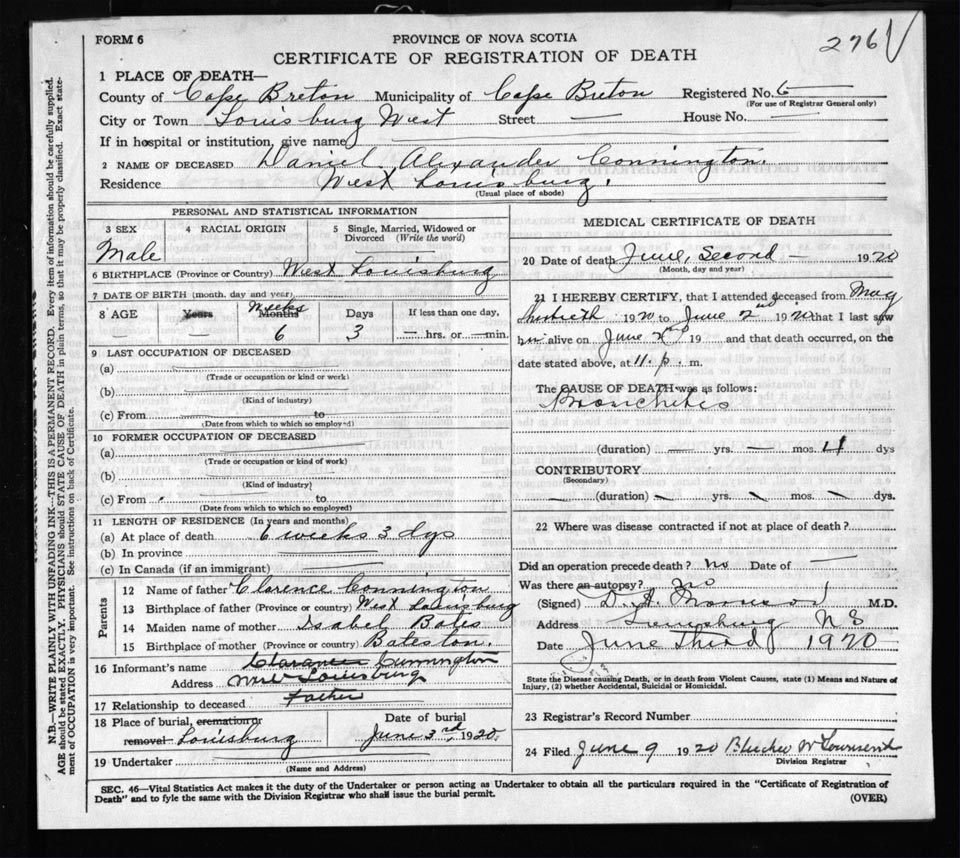 FORM 6
PROVINCE OF NOVA SCOTIA
276
CERTIFICATE OF REGISTRATION OF DEATH
1 PLACE OF DEATH—
County of Cape Breton Municipality of Cape Breton Registered No. 6
(For use of Registrar General only)
City or Town Louisburg West Street — House No. —
If in hospital or institution, give name
2 NAME OF DECEASED Daniel Alexander Connington.
Residence West Louisburg.
(Usual place of abode)
PERSONAL AND STATISTICAL INFORMATION
3 SEX 4 RACIAL ORIGIN 5 Single, Married, Widowed or Divorced (Write the word)
Male
6 BIRTHPLACE (Province or Country) West Louisburg
7 DATE OF BIRTH (month, day and year)
8 AGE Years Months Weeks Days If less than one day,
— 6 3 — hrs. or — min.
9 LAST OCCUPATION OF DECEASED
(a)
(Trade or occupation or kind or work)
(b)
(Kind of industry)
(c) From to
(Date from which to which so employed)
10 FORMER OCCUPATION OF DECEASED
(a)
(Trade or occupation or kind of work)
(b)
(Kind of industry)
(c) From to
(Date from which to which so employed)
11 LENGTH OF RESIDENCE (In years and months)
(a) At place of death 6 weeks 3 dys
(b) In province
(c) In Canada (if an immigrant)
Parents
12 Name of father Clarence Connington
13 Birthplace of father (Province or country) West Louisburg
14 Maiden name of mother Isabel Bates
15 Birthplace of mother (Province or Country) Bateston.
16 Informant's name Clarance Cunnington
Address West Louisburg
17 Relationship to deceased Father
18 Place of burial, cremation or removal Louisburg
Date of burial June 3rd, 1920
19 Undertaker
(Name and Address)
MEDICAL CERTIFICATE OF DEATH
20 Date of death June, Second — 1920
(Month, day and year)
21 I HEREBY CERTIFY, that I attended deceased from May
1920 to June 2nd 1920 that I last saw
him alive on June 2nd 19 and that death occurred, on the
date stated above, at 11. p. m.
The CAUSE OF DEATH was as follows:
Bronchitis
(duration) — yrs. — mos. dys
CONTRIBUTORY
(Secondary)
— (duration) — yrs. — mos. — dys.
22 Where was disease contracted if not at place of death?
Did an operation precede death? no Date of —
Was there an autopsy? No
(Signed) D. A. M.D.
Address Louisburg N S
Date June Third 1920
State the Disease causing Death, or in death from Violent Causes, state (1) Means and Nature of
Injury, (2) whether Accidental, Suicidal or Homicidal.
23 Registrar's Record Number
24 Filed June 9 1920 W Townsend
Division Registrar
SEC. 46—Vital Statistics Act makes it the duty of the Undertaker or person acting as Undertaker to obtain all the particulars required in the "Certificate of Registration of
Death" and to fyle the same with the Division Registrar who shall issue the burial permit.
(OVER)
N.B.—WRITE PLAINLY WITH UNFADING INK—THIS IS A PERMANENT RECORD. Every item of information should be carefully supplied.
AGE should be stated EXACTLY. PHYSICIANS should STATE CAUSE OF DEATH in plain terms, so that it may be properly classified. Exact state-
ment of OCCUPATION is very important. See instructions on back of Certificate.